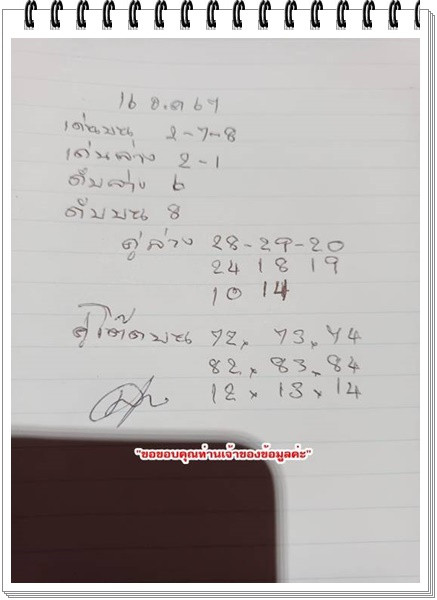 16 ธ.ค 67
เด่นบน 2-7-8
เด่นล่าง 2-1
ดับล่าง 6
ดับบน 8
คู่ล่าง 28-29-20
24 18 19
10 14
คู่โต๊ดบน 72, 73, 74
82, 83, 84
12, 13, 14
"ขอขอบคุณท่านเจ้าของข้อมูลค่ะ"